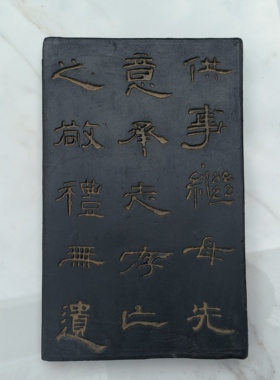 供事繼母先
意承志存亡
之敬禮無遺